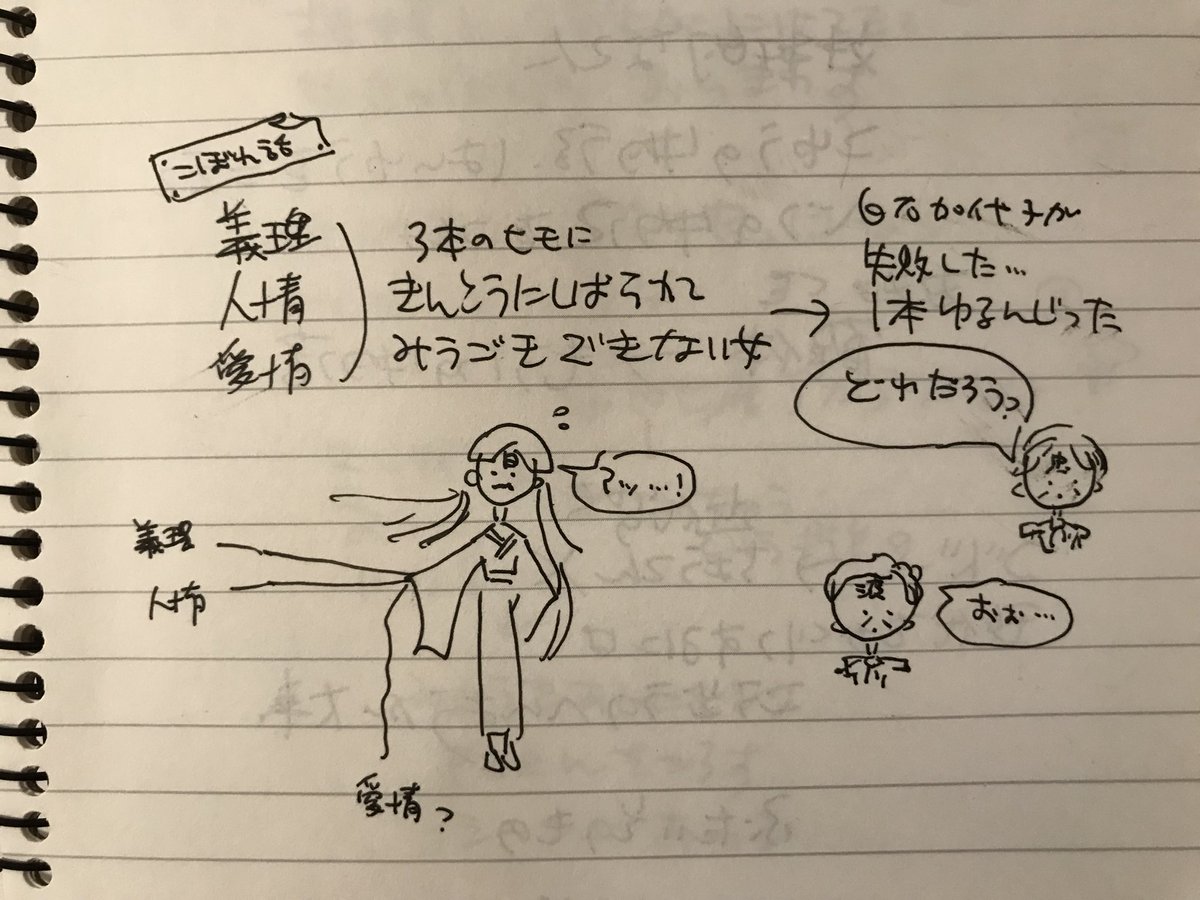 こぼれ話
義理
人情
愛情
3本のヒモに
きんとうにしばられて
みうごきできない女 →
白石加代子が
失敗した…
1本ゆるんじった
どれだろう?
白
アッ…!
義理
人情
おぉ…
愛情?